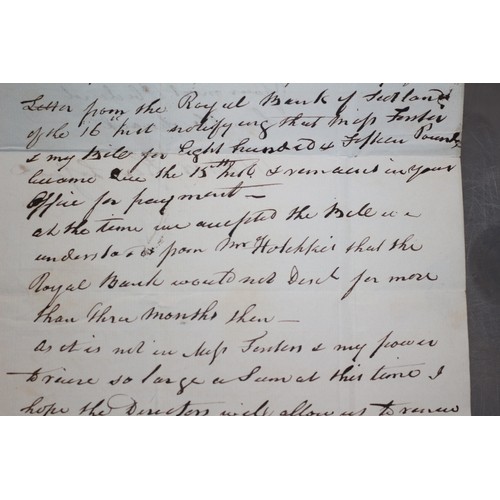 Letter from the Royal Bank of Scotland
of the 16 Inst notifying that Miss Forster
& my Bill for Eight hundred & Fifteen Pounds
became due the 15th Inst & remains in your
Office for payment —
at the time we accepted the Bill we
understood from Mr Hotchkis that the
Royal Bank would not Disct for more
than three months then —
as it is not in Miss Forsters & my power
to raise so large a Sum at this time I
hope the Directors will allow us to renew